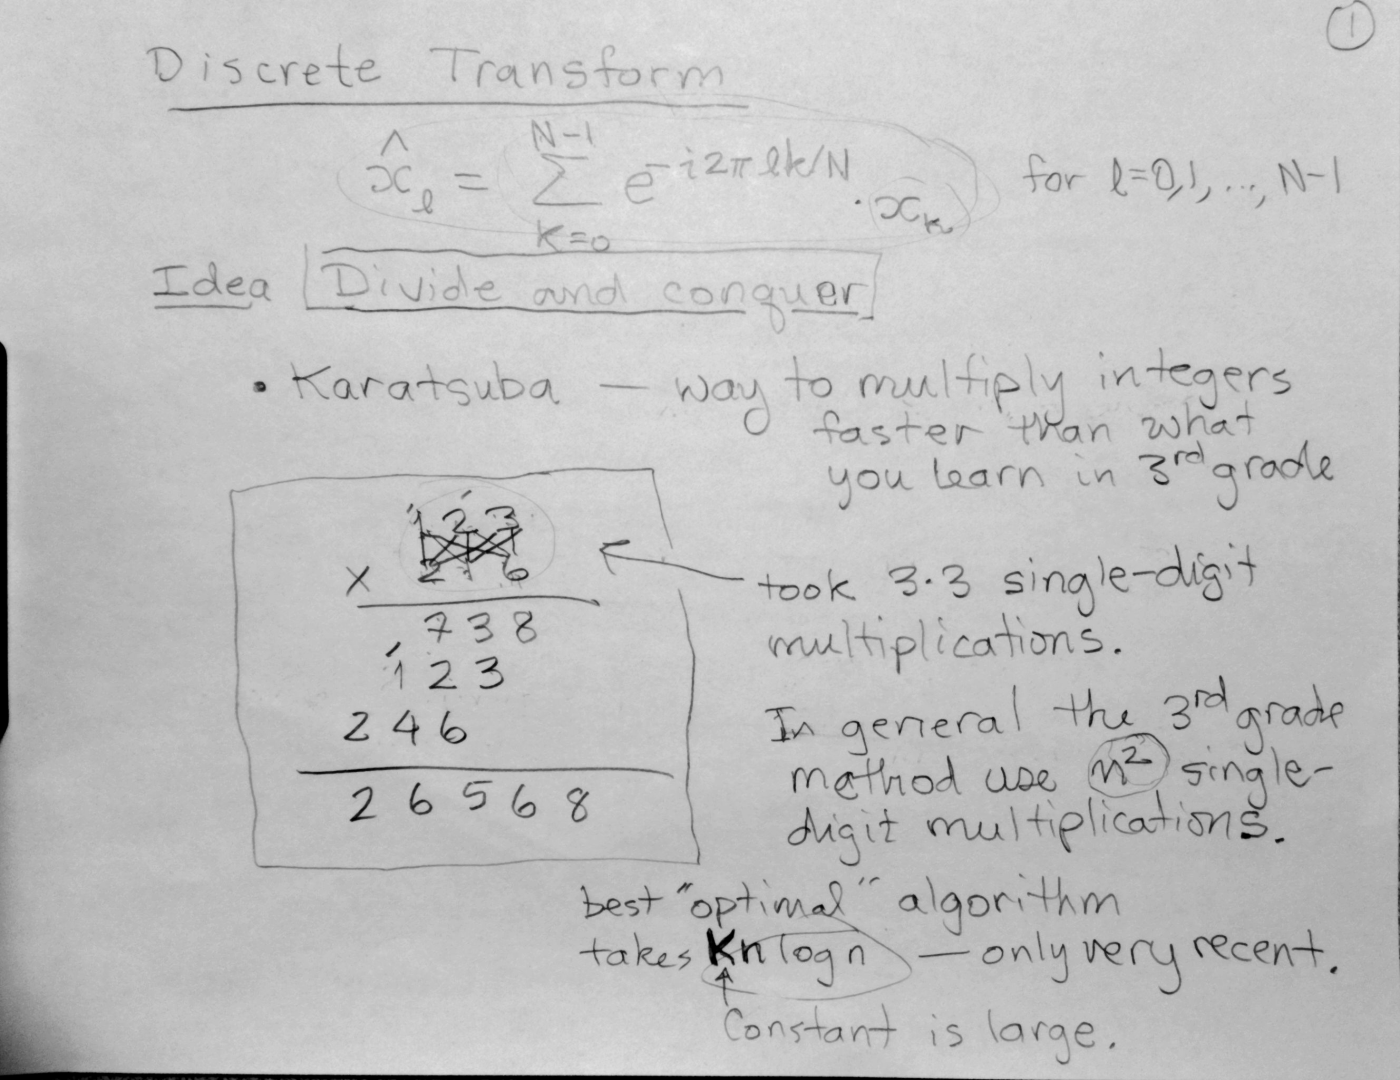 1
Discrete Transform
x̂_l = Σ_{k=0}^{N-1} e^{-i2πlk/N} · x_k for l=0,1,...,N-1
Idea Divide and conquer
• Karatsuba — way to multiply integers
faster than what
you learn in 3rd grade
1 2 3
x 2 1 6
7 3 8
1 2 3
2 4 6
2 6 5 6 8
took 3·3 single-digit
multiplications.
In general the 3rd grade
method use n² single-
digit multiplications.
best "optimal" algorithm
takes Kn log n — only very recent.
Constant is large.